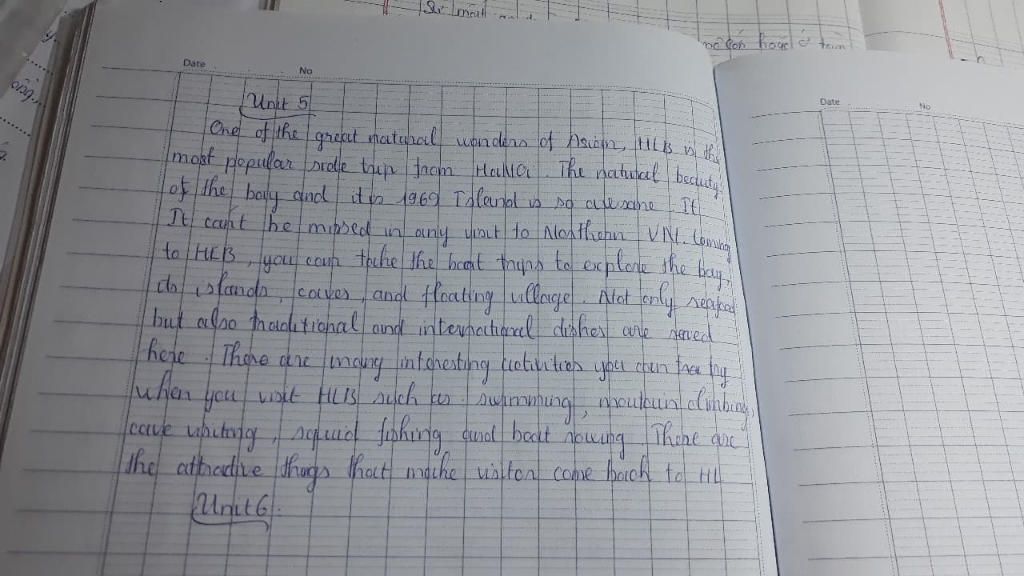 Sự
Date
No
Date
No
Unit 5
One of the great natural wonders of Asian, HLB is the
most popular side trip from HaNoi. The natural beauty
of the bay and its 1969 Island is so awesome. It
It can't be missed in any visit to Northern VN. Coming
to HLB, you can take the boat trips to explore the bay,
its islands, caves, and floating village. Not only seafood
but also traditional and international dishes are served
here. There are many interesting activities you can try
when you visit HLB such as swimming, moutain climbing,
cave visiting, squid fishing and boat rowing. There are
the attractive things that make visitor come back to HL
Unit 6.